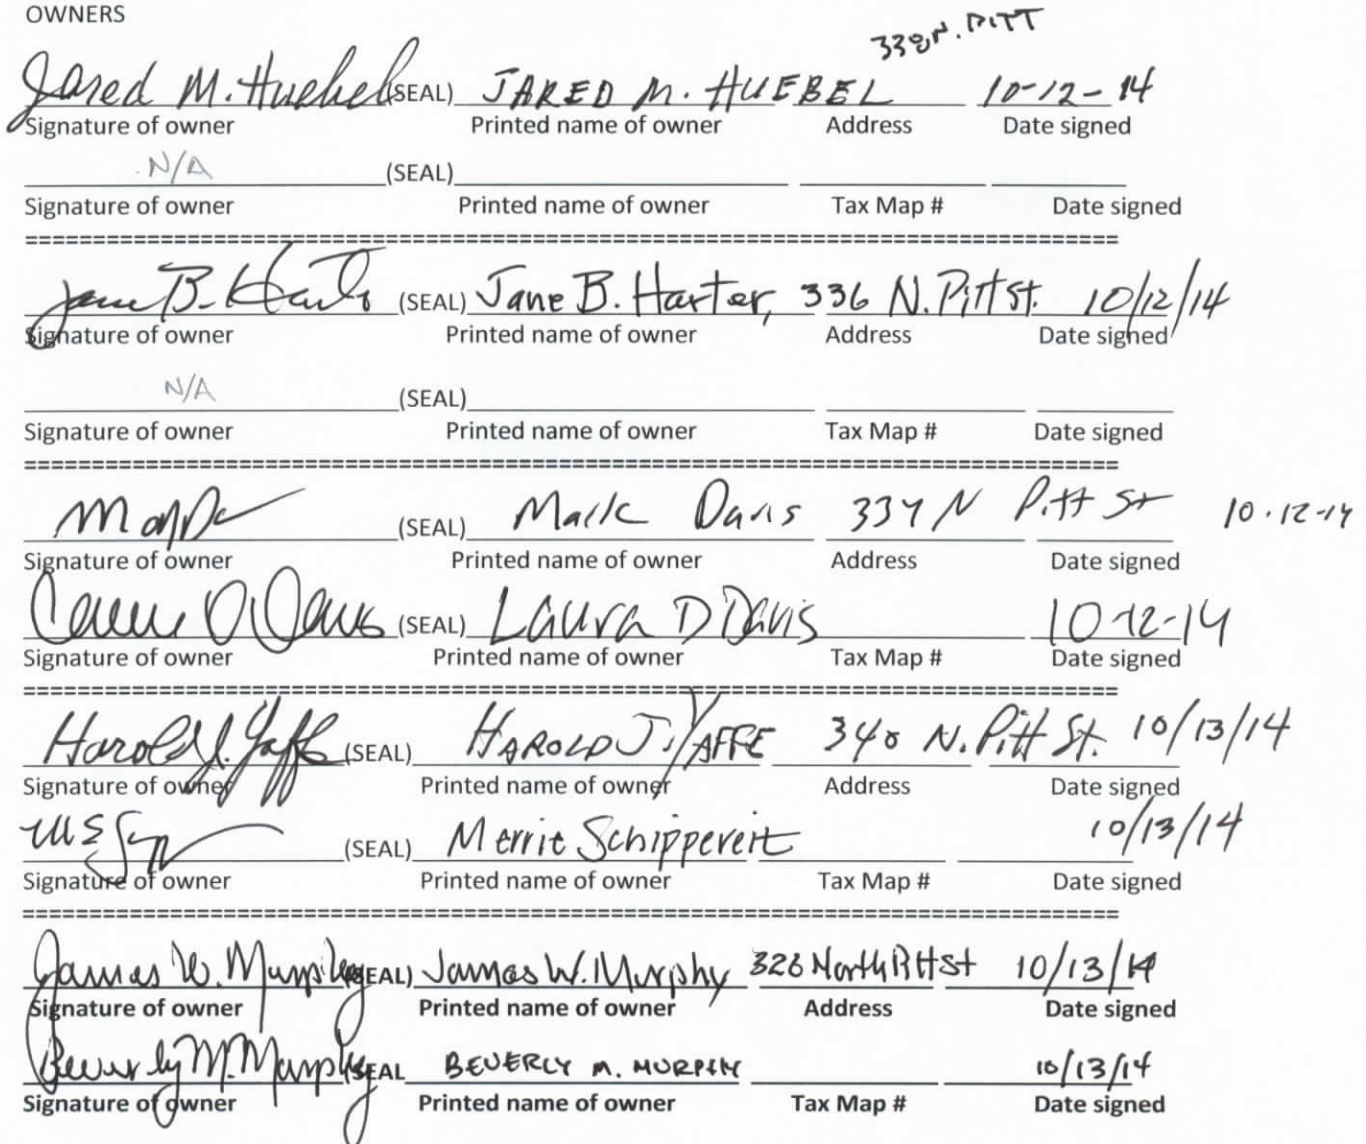 OWNERS
338 N. PITT
Jared M. Huebel (SEAL) JARED M. HUEBEL 10-12-14
Signature of owner Printed name of owner Address Date signed
N/A (SEAL)
Signature of owner Printed name of owner Tax Map # Date signed
================================================================================
Jane B. Harter (SEAL) Jane B. Harter, 336 N. Pitt St. 10/12/14
Signature of owner Printed name of owner Address Date signed
N/A (SEAL)
Signature of owner Printed name of owner Tax Map # Date signed
================================================================================
(SEAL) Mark Davis 334 N Pitt St 10-12-14
Signature of owner Printed name of owner Address Date signed
Laura D Davis (SEAL) Laura D Davis 10-12-14
Signature of owner Printed name of owner Tax Map # Date signed
================================================================================
Harold J. Yaffe (SEAL) HAROLD J. YAFFE 340 N. Pitt St. 10/13/14
Signature of owner Printed name of owner Address Date signed
(SEAL) Merrie Schippereit 10/13/14
Signature of owner Printed name of owner Tax Map # Date signed
================================================================================
James W. Murphy (SEAL) James W. Murphy 328 North Pitt St 10/13/14
Signature of owner Printed name of owner Address Date signed
Beverly M. Murphy (SEAL BEVERLY M. MURPHY 10/13/14
Signature of owner Printed name of owner Tax Map # Date signed